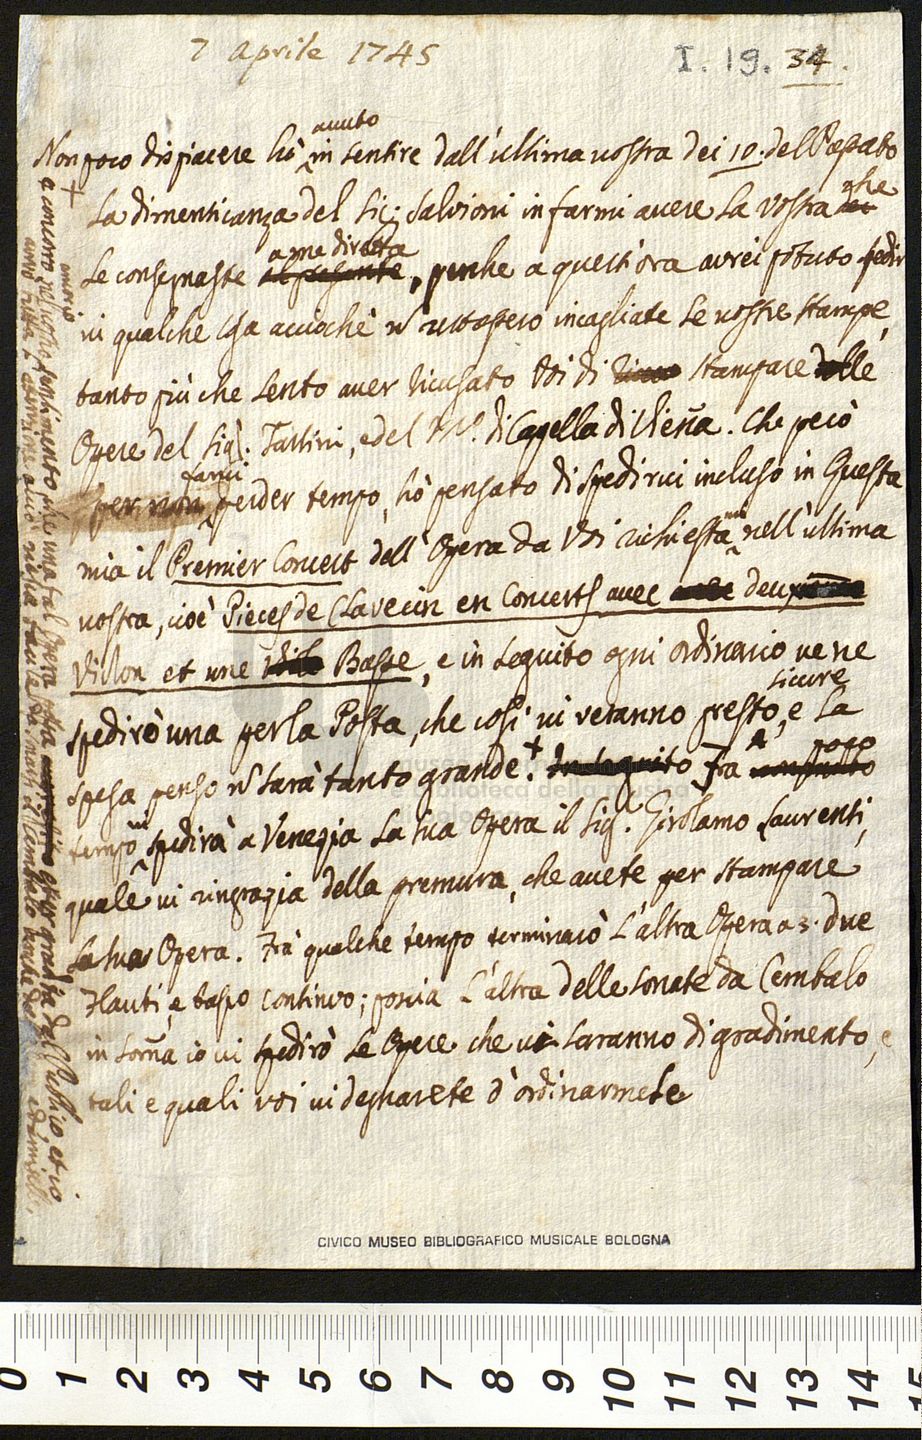 7 Aprile 1745
I. 19. 34.
Non poco dispiacere hò avuto in sentire dall'ultima vostra dei 10. del Passato
la dimenticanza del Sig: Salvioni in farmi avere la vostra che
le consegnaste a me diretta, perche a quest'ora avrei potuto spedir
vi qualche cosa acciochè restassero incagliate le vostre stampe,
tanto più che sento aver ricusato Voi di stampare delle
Opere del Sig: Tartini, e del M.º di Capella di Vieña. Che però
per non farvi perder tempo, hò pensato di spedirvi incluso in Questa
mia il Premier Concert dell'Opera da Voi richiesta nell'ultima
vostra, cioè Pieces de Clavecin en Concerts avec deux
Violon et une Basse, e in seguito ogni ordinario ve ne
spedirò una per la Posta, che così vi veranno presto, e sicure la
spesa penso sarà tanto grande. + Fra poco
tempo vi spedirà a Venezia la sua Opera il Sig: Girolamo Laurenti,
quale vi ringrazia della premura, che avete per stampare
la sua Opera. Frà qualche tempo terminarò l'altra Opera a 3. due
Flauti, e basso continuo; poscia l'altra delle sonate da Cembalo
in somma io vi spedirò le Opere che vi saranno di gradimento, e
tali e quali voi vi degnarete d'ordinarmele
+
a concorro nel vostro sentimento che una tal Opera gradita dal Publico et io
CIVICO MUSEO BIBLIOGRAFICO MUSICALE BOLOGNA
museo internazionale
e biblioteca della musica
bologna
0 1 2 3 4 5 6 7 8 9 10 11 12 13 14 15